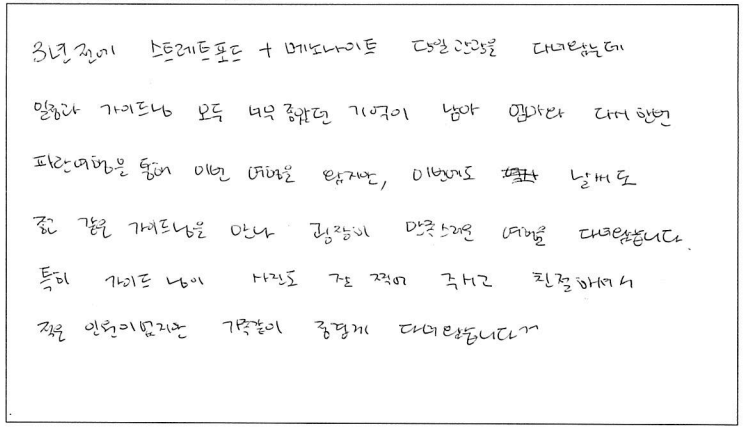 3년전에 스트레트포드 + 메노나이트 당일관광을 다녀왔는데
일정과 가이드님 모두 너무 좋았던 기억이 남아 엄마와 다시 한번
파란여행을 통해 이번 여행을 왔지만, 이번에도 날씨도
좋고 같은 가이드님을 만나 굉장히 만족스러운 여행을 다녀왔습니다.
특히 가이드님이 사진도 잘 찍어 주시고 친절하셔서
적은 인원이었지만 가족같이 즐겁게 다녀왔습니다